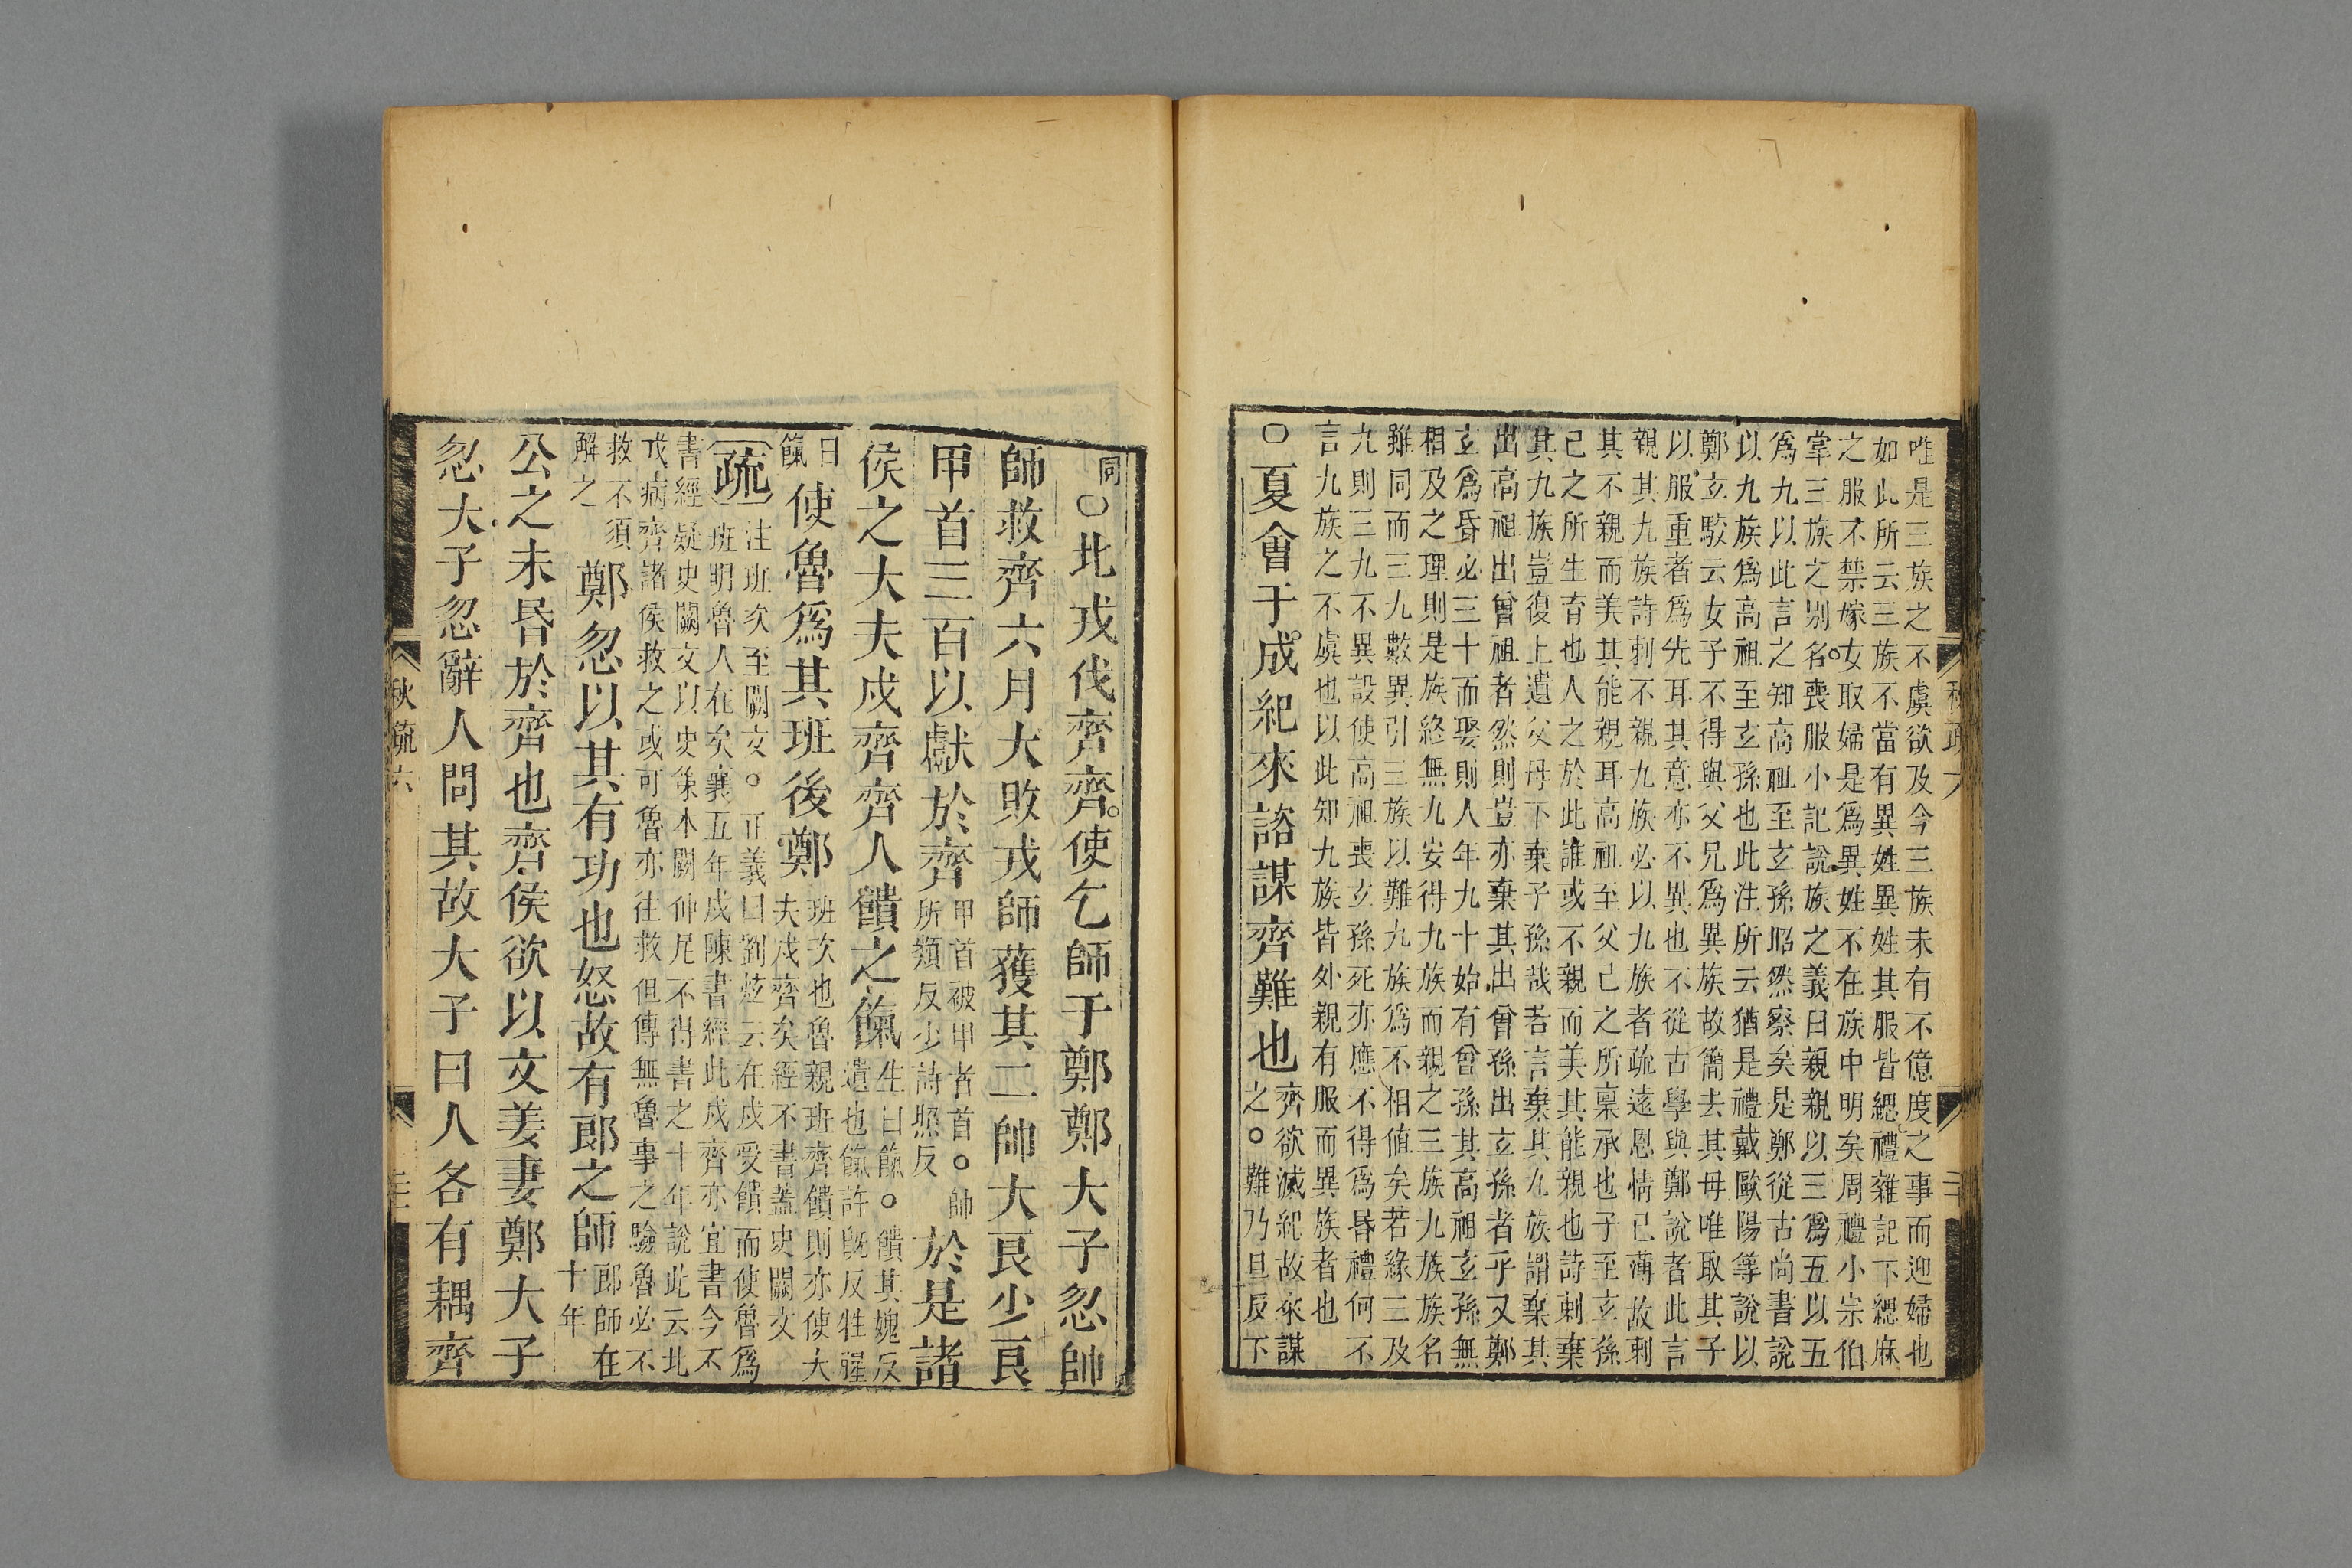 唯是三族之不虞欲及今三族未有不億度之事而迎婦也
如此所云三族不當有異姓異姓其服皆緦禮雜記下緦麻
之服不禁嫁女取婦是爲異姓不在族中明矣周禮小宗伯
掌三族之別名喪服小記說族之義曰親親以三爲五以五
爲九以此言之知高祖至玄孫昭然察矣是鄭從古尚書說
以九族爲高祖至玄孫也此注所云猶是禮戴歐陽等說以
鄭玄駁云女子不得與父兄爲異族故簡去其母唯取其子
以服重者爲先耳其意亦不異也不從古學與鄭說者此言
親其九族詩刺不親九族必以九族者疏遠恩情已薄故刺
其不親而美其能親耳高祖至父己之所稟承也子至玄孫
己之所生育也人之於此誰或不親而美其能親也詩刺棄
其九族豈復上遺父母下棄子孫哉若言棄其九族謂棄其
出高祖出曾祖者然則豈亦棄其出曾孫出玄孫者乎又鄭
玄爲昏必三十而娶則人年九十始有曾孫其高祖玄孫無
相及之理則是族終無九安得九族而親之三族九族族名
雖同而三九數異引三族以難九族爲不相值矣若緣三及
九則三九不異設使高祖喪玄孫死亦應不得爲昏禮何不
言九族之不虞也以此知九族皆外親有服而異族者也
○夏會于成紀來諮謀齊難也齊欲滅紀故來謀
之。難乃旦反下
秋疏六
二十
同○北戎伐齊齊使乞師于鄭鄭大子忽帥
師救齊六月大敗戎師獲其二帥大良少良
甲首三百以獻於齊甲首被甲者首。帥
所類反少詩照反於是諸
侯之大夫戍齊齊人饋之餼生曰餼。饋其媿反
遺也餼許既反牲腥
曰
餼使魯爲其班後鄭班次也魯親班齊饋則亦使大
夫戍齊矣經不書蓋史闕文
疏注班次至闕文。正義曰劉炫云在戍受饋而使魯爲
班明魯人在矣襄五年戍陳書經此戍齊亦宜書今不
書經疑史闕文以史策本闕仲尼不得書之十年說此云北
戎病齊諸侯救之或可魯亦往救但傳無魯事之驗魯必不
救不須
解之鄭忽以其有功也怒故有郎之師郎師在
十年
公之未昏於齊也齊侯欲以文姜妻鄭大子
忽大子忽辭人問其故大子曰人各有耦齊
秋疏六